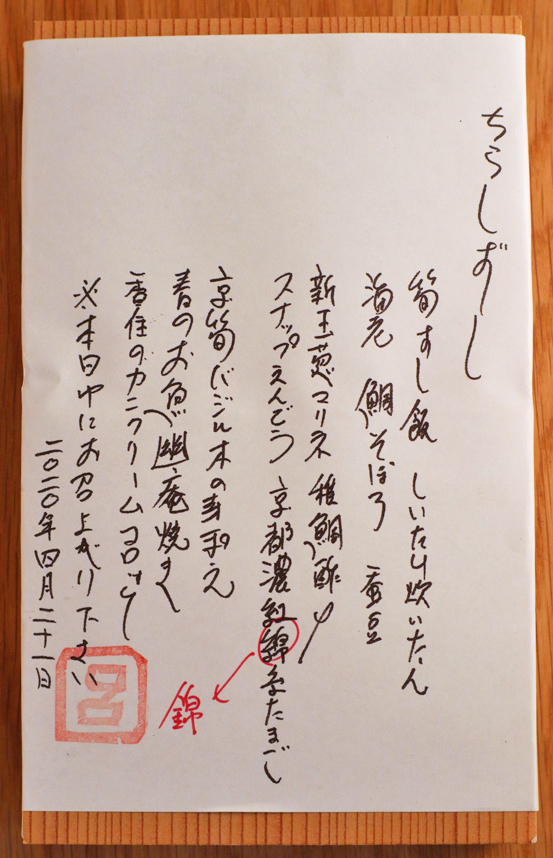 ちらしずし
筍すし飯 しいたけ炊いたん
海老 鯛そぼろ 蚕豆
新玉葱マリネ 稚鯛酢〆
スナップえんどう 京都濃紅綿糸たまご
錦
京筍バジル木の芽和え
春のお魚幽庵焼き
香住のカニクリームコロッケ
※本日中にお召上がり下さい
二〇二〇年四月二十一日
呂